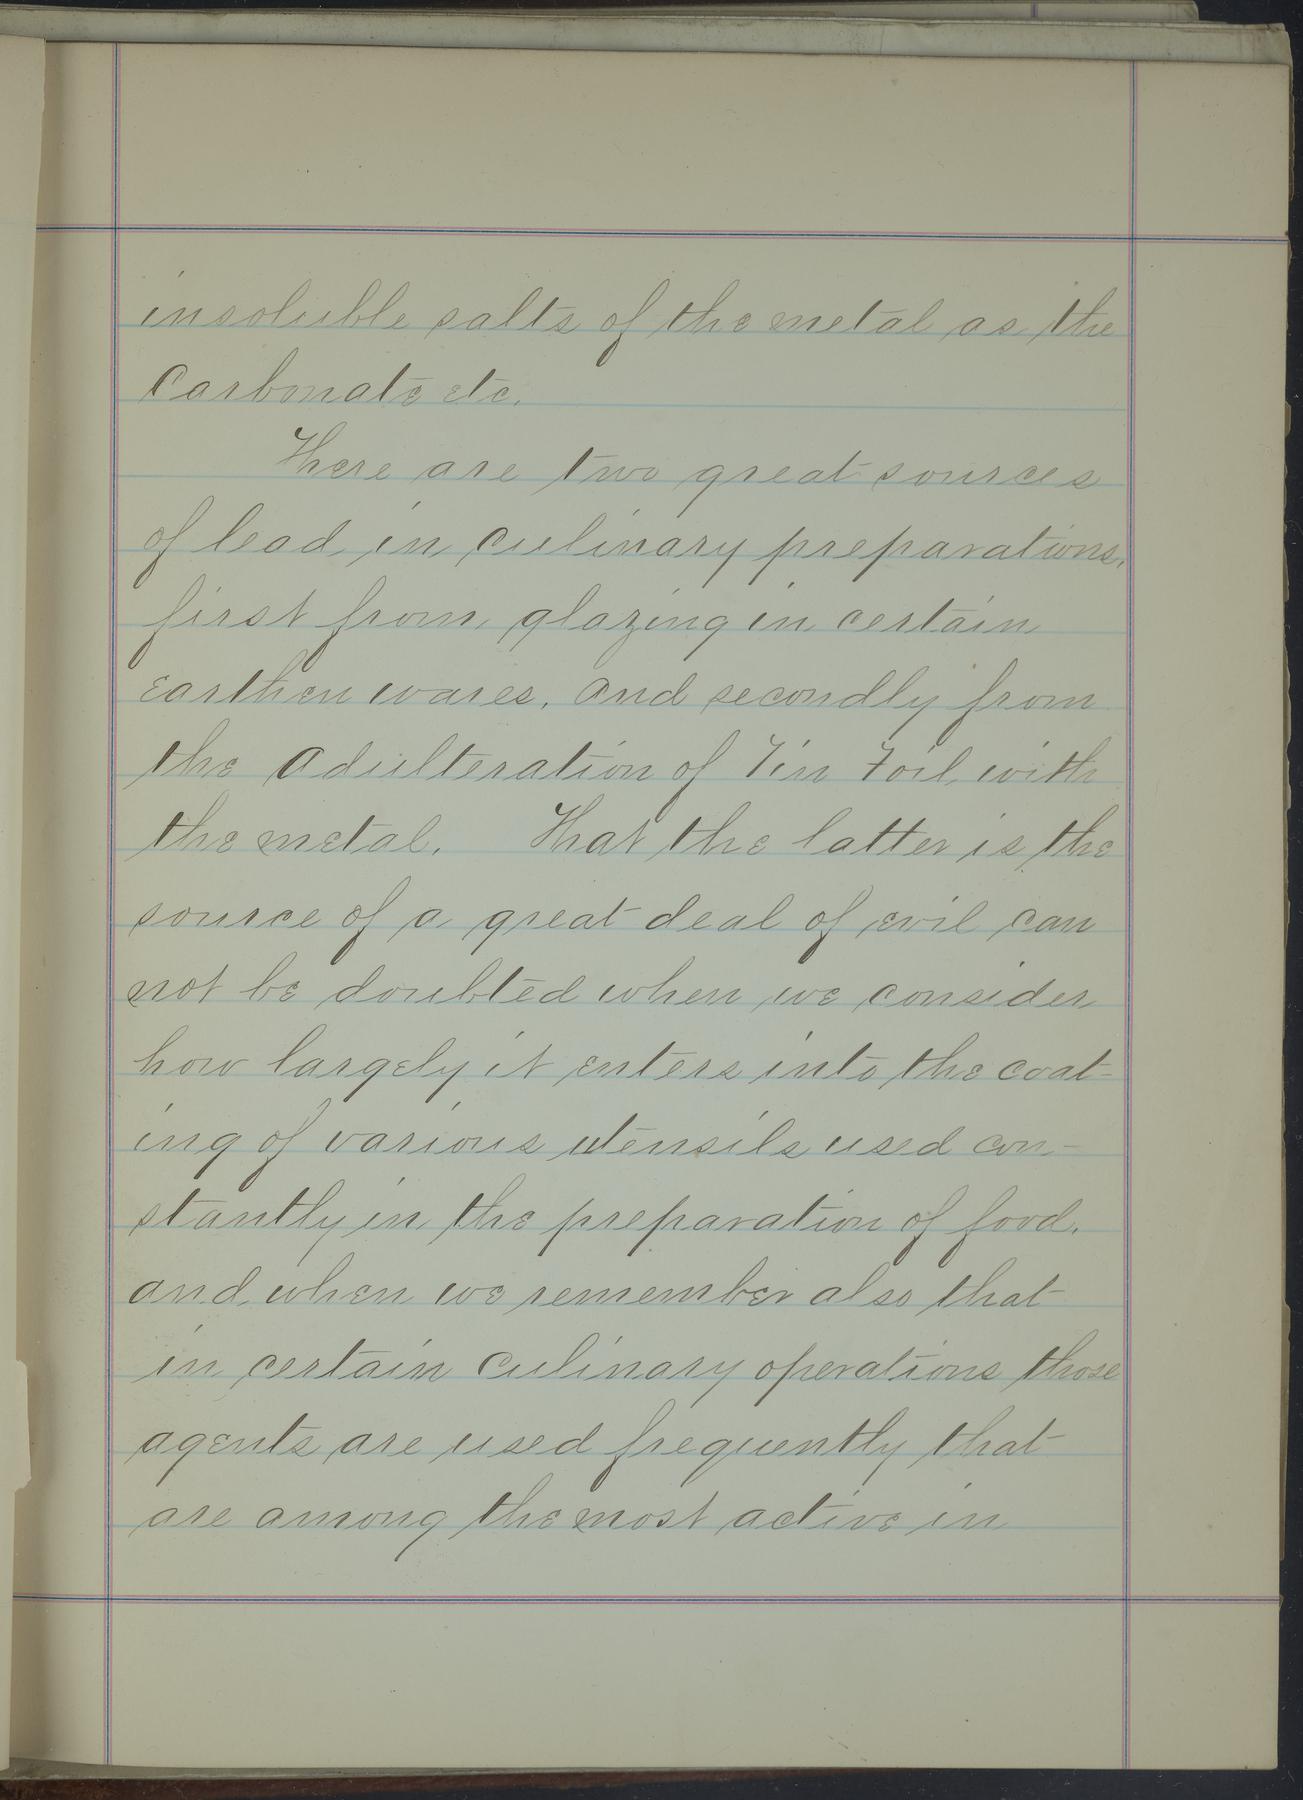 insoluble salts of the metal as the
Carbonate etc.
There are two great sources
of lead in culinary preparations,
first from glazing in certain
earthen wares, and secondly from
the adulteration of Tin Foil with
the metal. That the latter is the
source of a great deal of evil can
not be doubted when we consider
how largely it enters into the coat-
ing of various utensils used con-
stantly in the preparation of food,
and when we remember also that
in certain culinary operations those
agents are used frequently that
are among the most active in